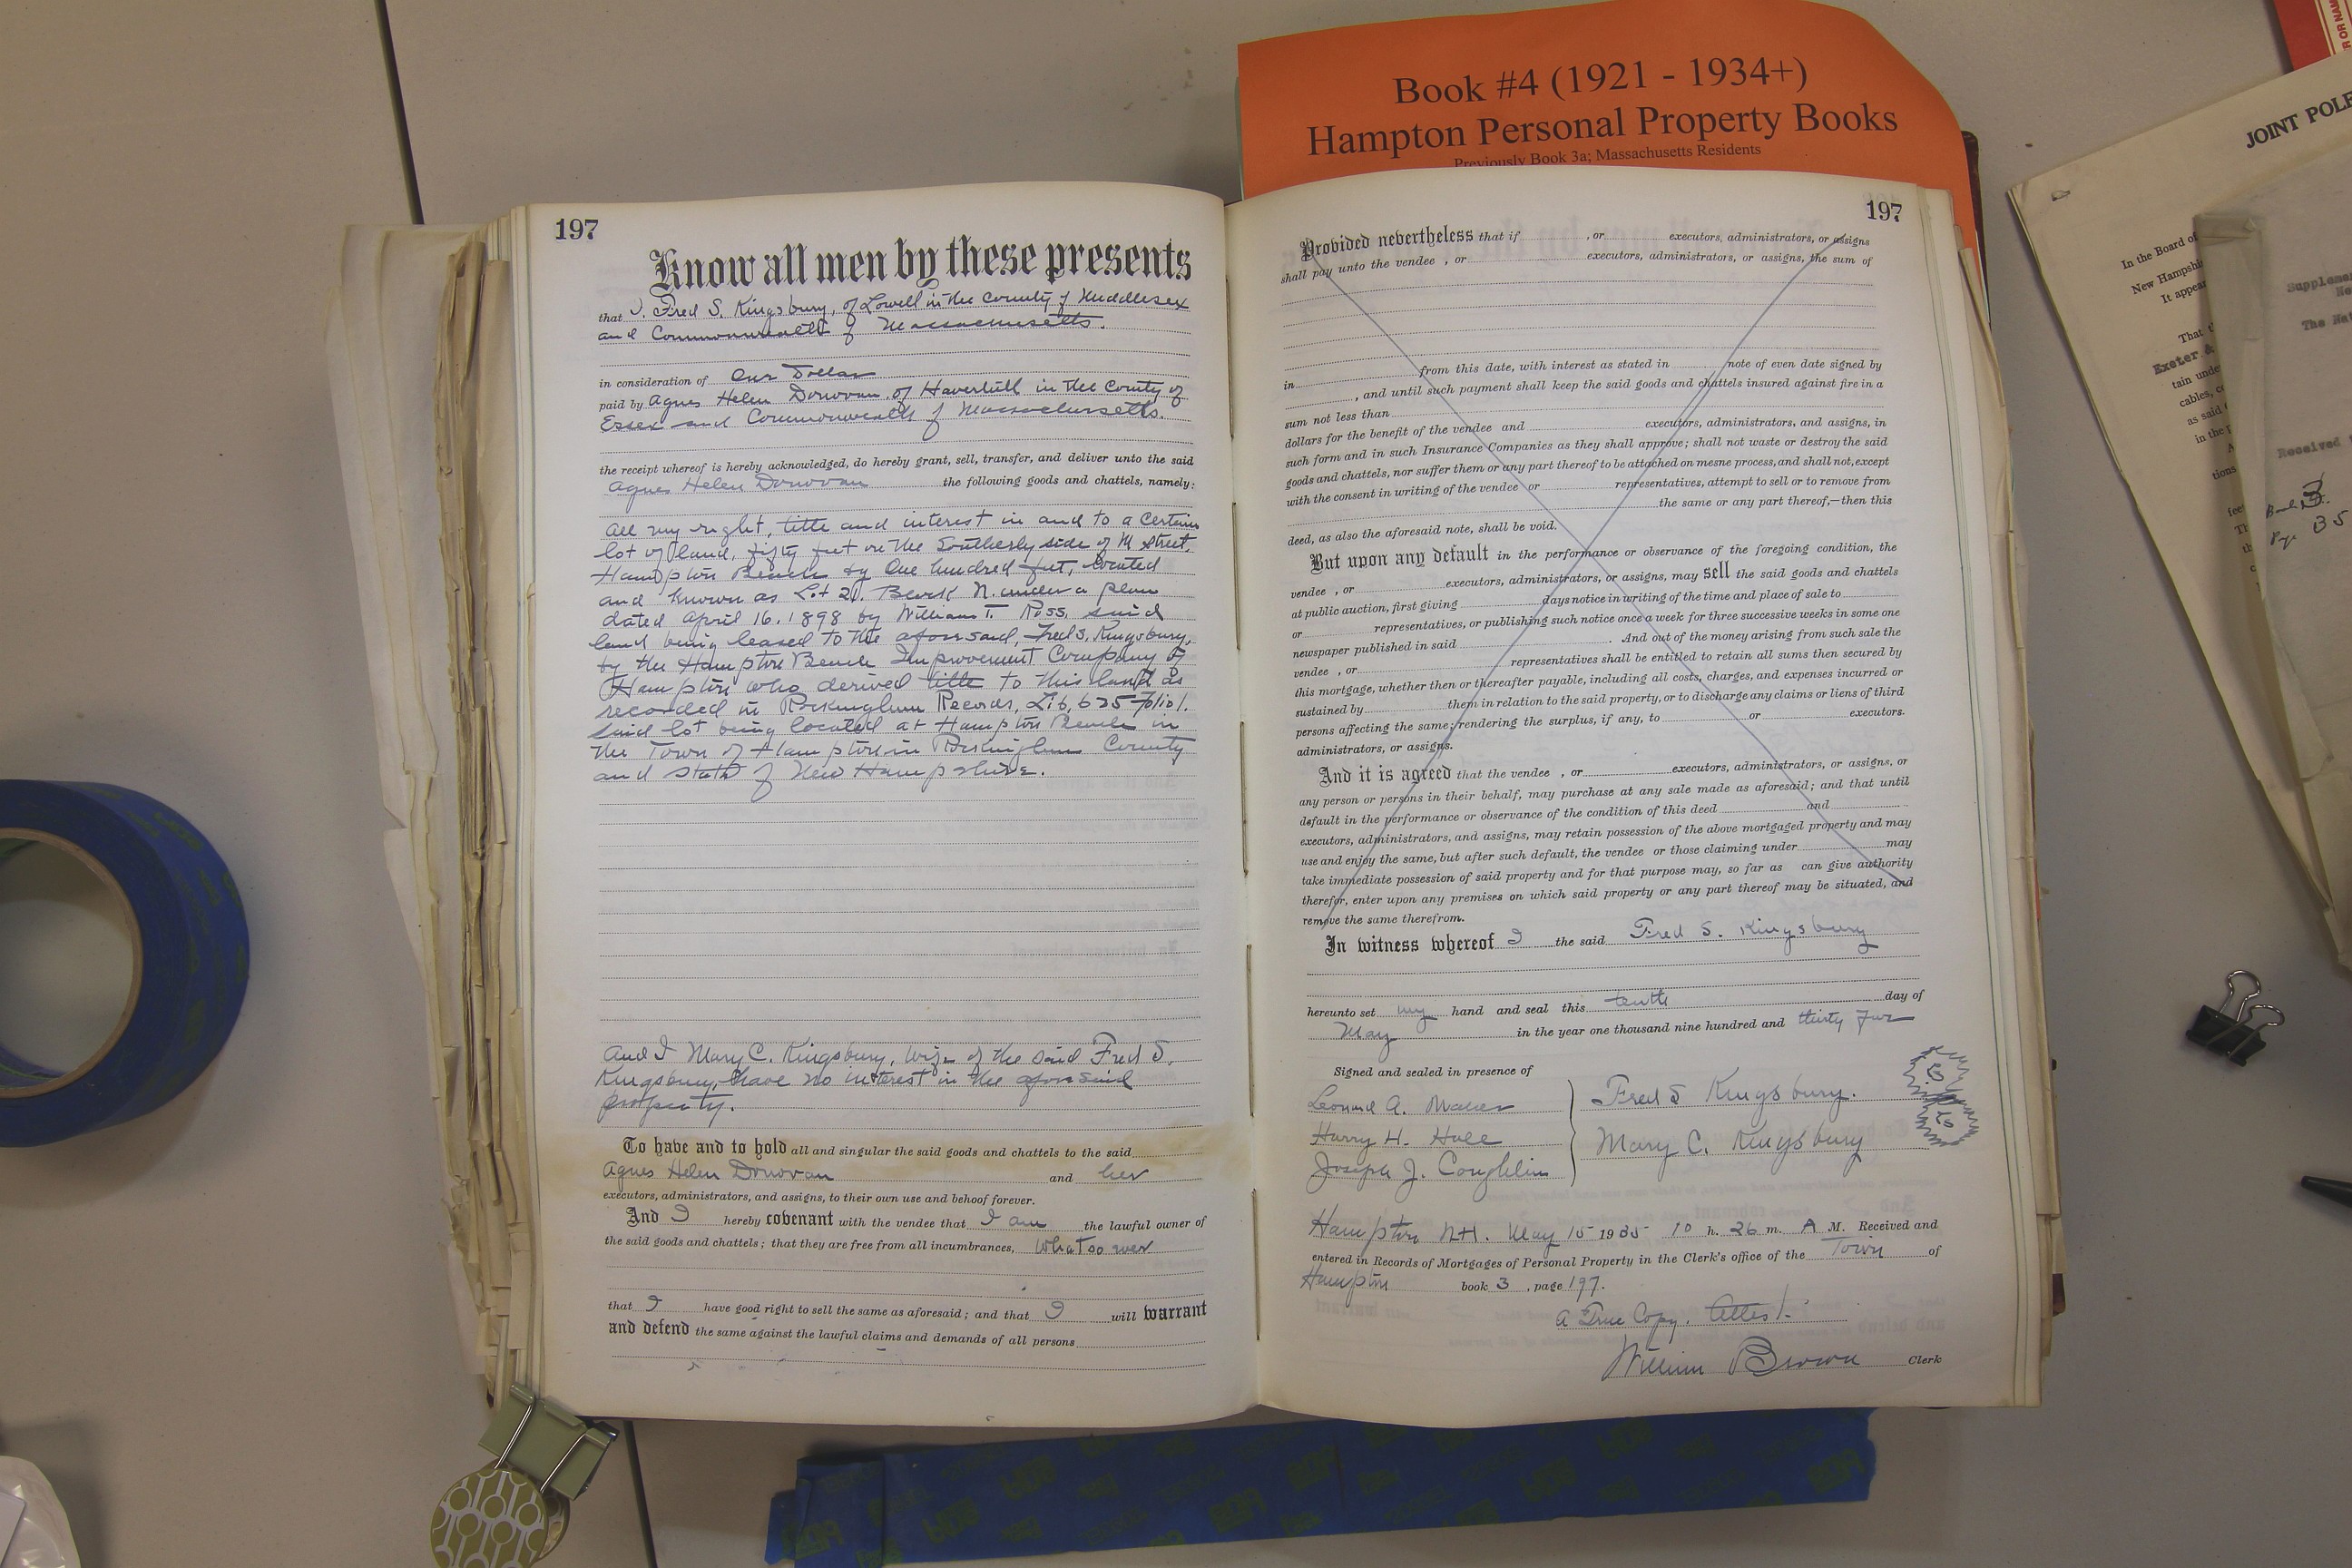 Book #4 (1921 - 1934+)
Hampton Personal Property Books
Previously Book 3a; Massachusetts Residents
OR NAM
JOINT POLE
In the Board of
New Hampshi
It appea
That t
Exeter &
tain unde
cables, c
as said
in the p
tions
Supplem
The Nat
Received
Book 3.
Page 35
197
Know all men by these presents
that I, Fred S. Kingsbury, of Lowell in the County of Middlesex
and Commonwealth of Massachusetts.
in consideration of One Dollar
paid by Agnes Helen Donovan of Haverhill in the County of
Essex and Commonwealth of Massachusetts.
the receipt whereof is hereby acknowledged, do hereby grant, sell, transfer, and deliver unto the said
Agnes Helen Donovan the following goods and chattels, namely:
All my right, title and interest in and to a certain
lot of land, fifty feet on the Southerly side of M Street,
Hampton Beach by One hundred feet, located
and known as Lot 21. Block N. under a plan
dated April 16, 1898 by William T. Ross, said
land being leased to the aforesaid, Fred S. Kingsbury,
by the Hampton Beach Improvement Company of
Hampton who derived title to this land as
recorded in Rockingham Records, Lib, 625 Folio 1.
said lot being located at Hampton Beach in
the Town of Hampton in Rockingham County
and State of New Hampshire.
And I Mary C. Kingsbury, wife of the said Fred S.
Kingsbury, have no interest in the aforesaid
property.
To have and to hold all and singular the said goods and chattels to the said
Agnes Helen Donovan and her
executors, administrators, and assigns, to their own use and behoof forever.
And I hereby covenant with the vendee that I am the lawful owner of
the said goods and chattels; that they are free from all incumbrances, whatsoever
that I have good right to sell the same as aforesaid; and that I will warrant
and defend the same against the lawful claims and demands of all persons
197
Provided nevertheless that if , or executors, administrators, or assigns
shall pay unto the vendee , or executors, administrators, or assigns, the sum of
in from this date, with interest as stated in note of even date signed by
, and until such payment shall keep the said goods and chattels insured against fire in a
sum not less than
dollars for the benefit of the vendee and executors, administrators, and assigns, in
such form and in such Insurance Companies as they shall approve; shall not waste or destroy the said
goods and chattels, nor suffer them or any part thereof to be attached on mesne process, and shall not, except
with the consent in writing of the vendee or representatives, attempt to sell or to remove from
the same or any part thereof,—then this
deed, as also the aforesaid note, shall be void.
But upon any default in the performance or observance of the foregoing condition, the
vendee , or executors, administrators, or assigns, may sell the said goods and chattels
at public auction, first giving days notice in writing of the time and place of sale to
or representatives, or publishing such notice once a week for three successive weeks in some one
newspaper published in said . And out of the money arising from such sale the
vendee , or representatives shall be entitled to retain all sums then secured by
this mortgage, whether then or thereafter payable, including all costs, charges, and expenses incurred or
sustained by them in relation to the said property, or to discharge any claims or liens of third
persons affecting the same; rendering the surplus, if any, to or executors.
administrators, or assigns.
And it is agreed that the vendee , or executors, administrators, or assigns, or
any person or persons in their behalf, may purchase at any sale made as aforesaid; and that until
default in the performance or observance of the condition of this deed and
executors, administrators, and assigns, may retain possession of the above mortgaged property and may
use and enjoy the same, but after such default, the vendee or those claiming under may
take immediate possession of said property and for that purpose may, so far as can give authority
therefor, enter upon any premises on which said property or any part thereof may be situated, and
remove the same therefrom.
In witness whereof I the said Fred S. Kingsbury
hereunto set my hand and seal this tenth day of
May in the year one thousand nine hundred and thirty
Signed and sealed in presence of
Leonard A.
Harry H. Hale
Joseph J. Coughlin
Fred S Kingsbury.
Mary C. Kingsbury
Hampton N.H. May 15 1935 10 h. 26 m. A M. Received and
entered in Records of Mortgages of Personal Property in the Clerk's office of the Town of
Hampton book 3 , page 197.
A True Copy. Attest.
William Brown Clerk